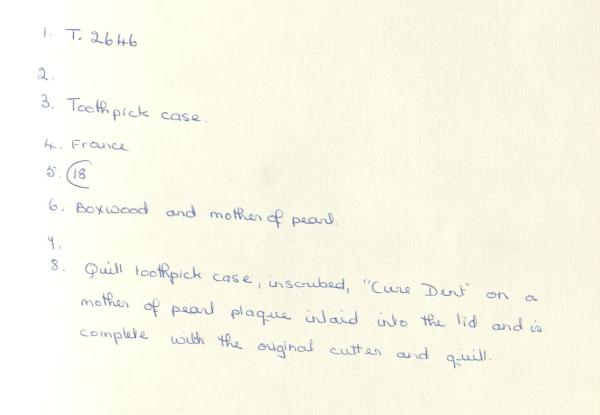 1. T. 2646
2.
3. Toothpick case.
4. France
5. 18
6. Boxwood and mother of pearl.
7.
8. Quill toothpick case, inscribed, "Cure Dent" on a
mother of pearl plaque inlaid into the lid and is
complete with the original cutter and quill.